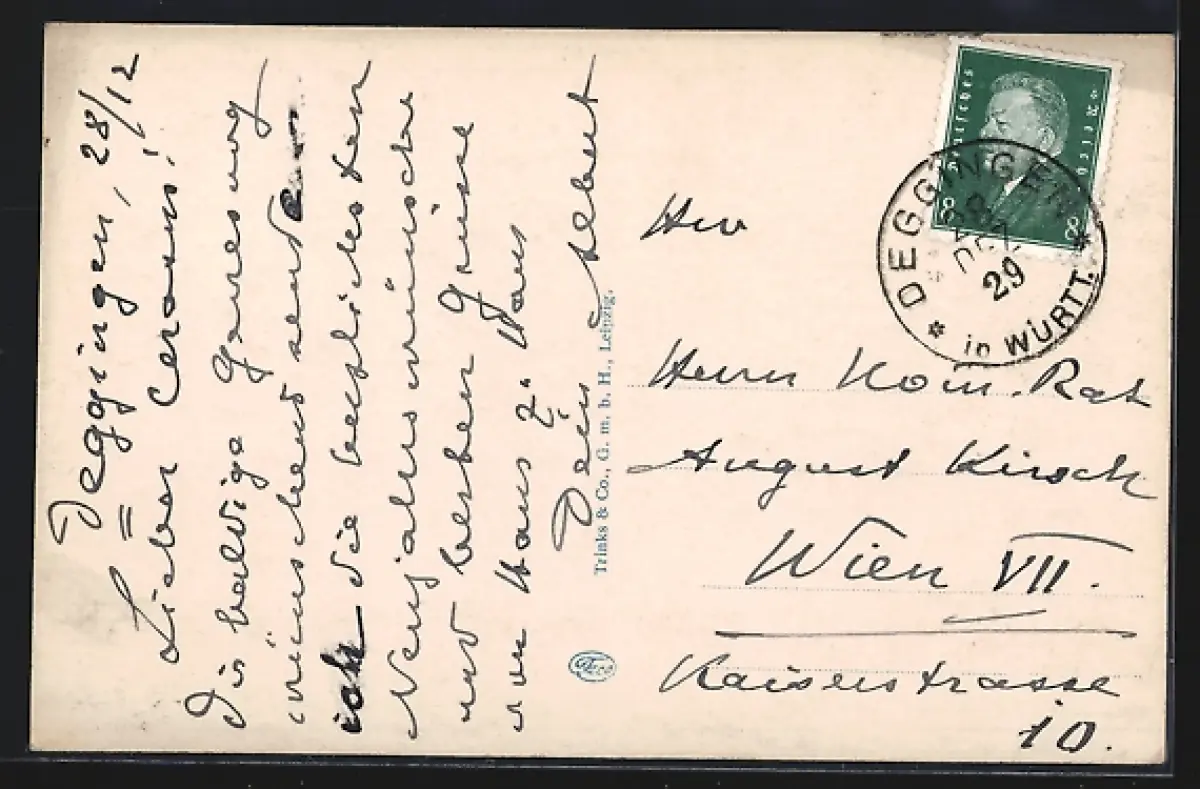 Deggingen, 28/12
Lieber
Dir baldige Genesung
wünschend sende
ich die herzlichsten
Neujahrswünsche
und besten Grüsse
von Haus z. Haus
Dein Albert
Trinks & Co., G. m. b. H., Leipzig.
Deutsches Reich
8 8
DEGGINGEN
28
DEZ
29
* in WÜRTT. *
Herrn Kom. Rat
August Kirsch
Wien VII.
Kaiserstrasse
10.